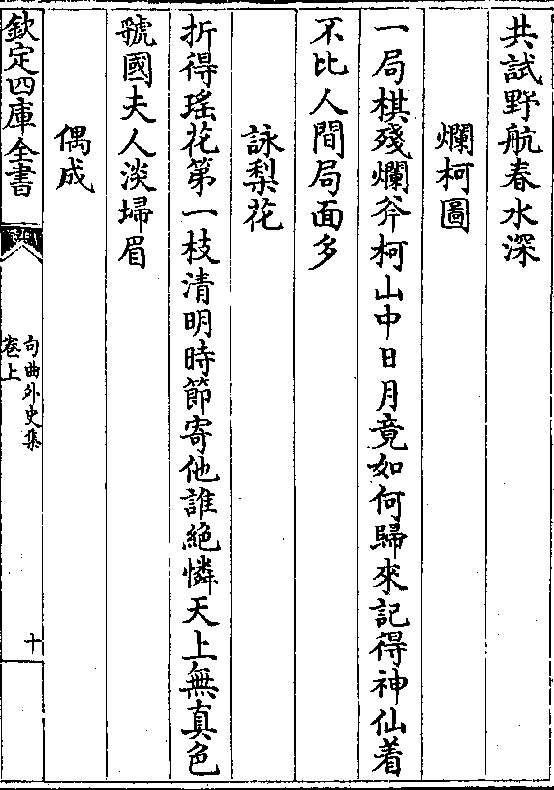 共試野航春水深
爛柯圖
一局棋殘爛斧柯山中日月竟如何歸來記得神仙着
不比人間局面多
詠梨花
折得瑤花第一枝清明時節寄他誰絶憐天上無真色
虢國夫人淡埽眉
偶成
欽定四庫全書
句曲外史集
卷上
十